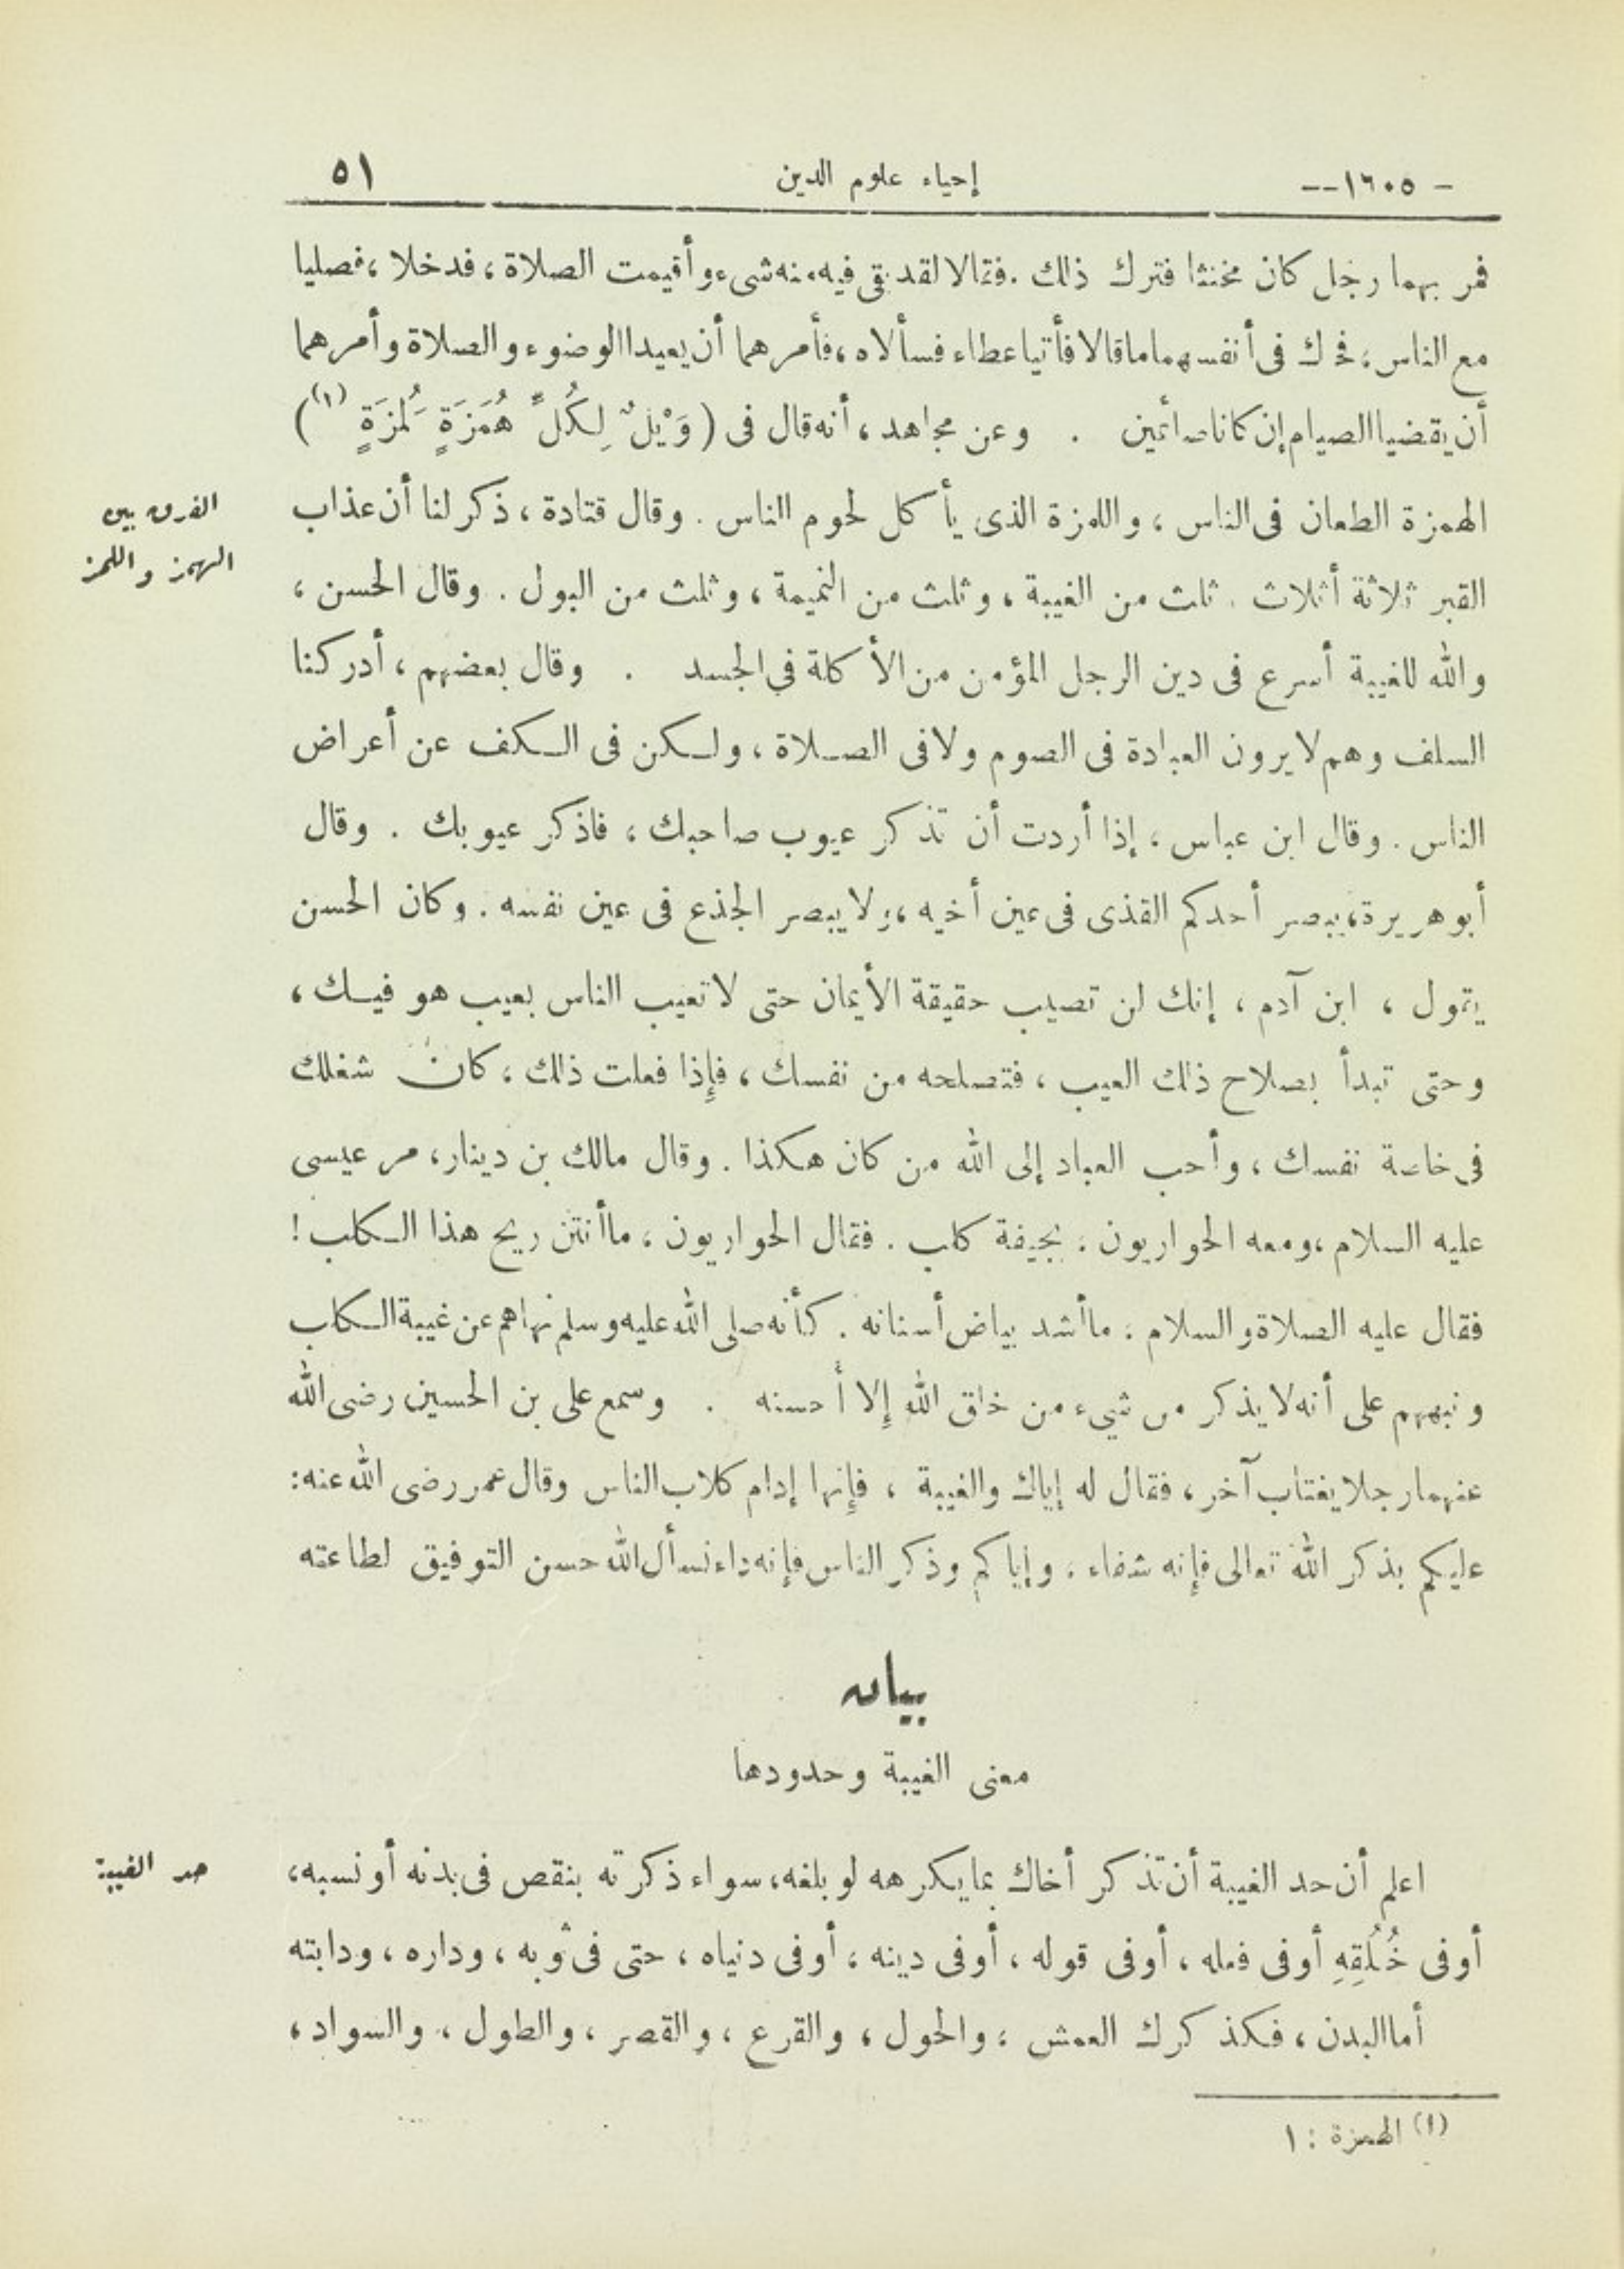 - ١٦٠٥ -- إحياء علوم الدين ٥١
فمر بهما رجل كان مخنثا فترك ذلك . فقالا لقد بقى فيه منه شىء وأقيمت الصلاة ، فدخلا ، فصليا
مع الناس ، فحك فى أنفسهما ما قالا فأتيا عطاء فسألاه ، فأمرهما أن يعيدا الوضوء والصلاة وأمرهما
أن يقضيا الصيام إن كانا صائمين . وعن مجاهد ، أنه قال فى ( وَيْلٌ لِكُلِّ هُمَزَةٍ لُمَزَةٍ (١) )
الهمزة الطعان فى الناس ، واللمزة الذى يأكل لحوم الناس . وقال قتادة ، ذكر لنا أن عذاب
الفرق بين
الهمز واللمز
القبر ثلاثة أثلاث . ثلث من الغيبة ، وثلث من النميمة ، وثلث من البول . وقال الحسن ،
والله للغيبة أسرع فى دين الرجل المؤمن من الأكلة في الجسد . وقال بعضهم ، أدركنا
السلف وهم لا يرون العبادة فى الصوم ولا فى الصلاة ، ولكن فى الكف عن أعراض
الناس . وقال ابن عباس ، إذا أردت أن تذكر عيوب صاحبك ، فاذكر عيوبك . وقال
أبو هريرة ، يبصر أحدكم القذى فى عين أخيه ، ولا يبصر الجذع فى عين نفسه . وكان الحسن
يقول ، ابن آدم ، إنك لن تصيب حقيقة الأيمان حتى لا تعيب الناس بعيب هو فيك ،
وحتى تبدأ بصلاح ذلك العيب ، فتصلحه من نفسك ، فإذا فعلت ذلك ، كان شغلك
فى خاصة نفسك ، وأحب العباد إلى الله من كان هكذا . وقال مالك بن دينار ، مر عيسى
عليه السلام ، ومعه الحواريون ، بجيفة كلب . فقال الحواريون ، ما أنتن ريح هذا الكلب !
فقال عليه الصلاة والسلام : ما أشد بياض أسنانه . كأنه صلى الله عليه وسلم نهاهم عن غيبة الكلب
ونبههم على أنه لا يذكر من شيء من خلق الله إلا أحسنه . وسمع على بن الحسين رضى الله
عنهما رجلا يغتاب آخر ، فقال له إياك والغيبة ، فإنها إدام كلاب الناس وقال عمر رضى الله عنه :
عليكم بذكر الله تعالى فإنه شفاء ، وإياكم وذكر الناس فإنه داء نسأل الله حسن التوفيق لطاعته
بيان
معنى الغيبة وحدودها
اعلم أن حد الغيبة أن تذكر أخاك بما يكرهه لو بلغه ، سواء ذكرته بنقص فى بدنه أو نسبه ،
حد الغيبة
أو فى خُلُقِهِ أو فى فعله ، أو فى قوله ، أو فى دينه ، أو فى دنياه ، حتى فى ثوبه ، وداره ، ودابته
أما البدن ، فكذكرك العمش ، والحول ، والقرع ، والقصر ، والطول ، والسواد ،
(١) الهمزة : ١